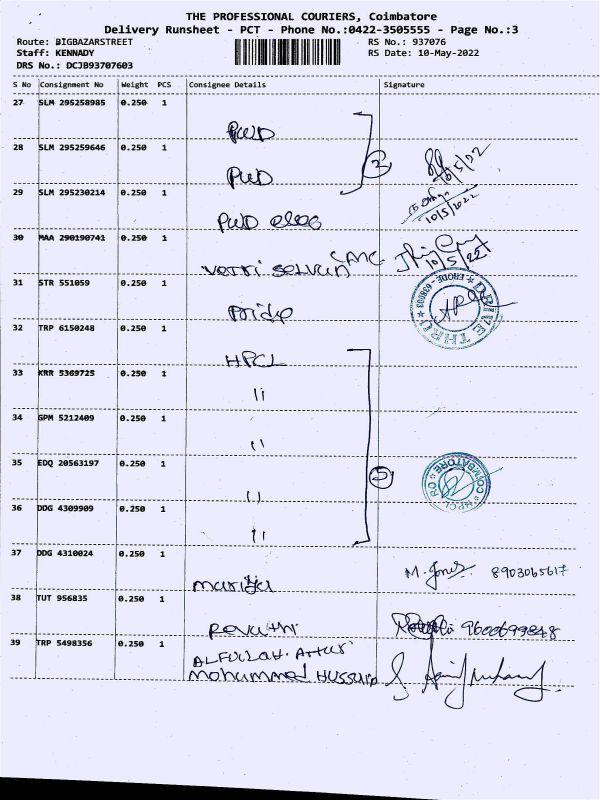 THE PROFESSIONAL COURIERS, Coimbatore
Delivery Runsheet - PCT - Phone No.:0422-3505555 - Page No.:3
Route: BIGBAZARSTREET
RS No.: 937076
Staff: KENNADY
RS Date: 10-May-2022
DRS No.: DCJB93707603
S No Consignment No Weight PCS Consignee Details Signature
27 SLM 295258985 0.250 1
PWD
28 SLM 295259646 0.250 1
2
10/5/22
PWD
29 SLM 295230214 0.250 1
10/5/2022
PWD
30 MAA 290190741 0.250 1
10/5/22
Vetri Selvan
31 STR 551059 0.250 1
DRIVE THRU ERODE - 638003
32 TRP 6150248 0.250 1
HPCL
33 KRR 5369725 0.250 1
11
34 GPM 5212409 0.250 1
11
35 EDQ 20563197 0.250 1
5
COIMBATORE HPCL RO
11
36 DDG 4309909 0.250 1
11
37 DDG 4310024 0.250 1
M. Jones 8903065617
38 TUT 956835 0.250 1
Revathi 9600699848
39 TRP 5498356 0.250 1
Mohummed Hussain